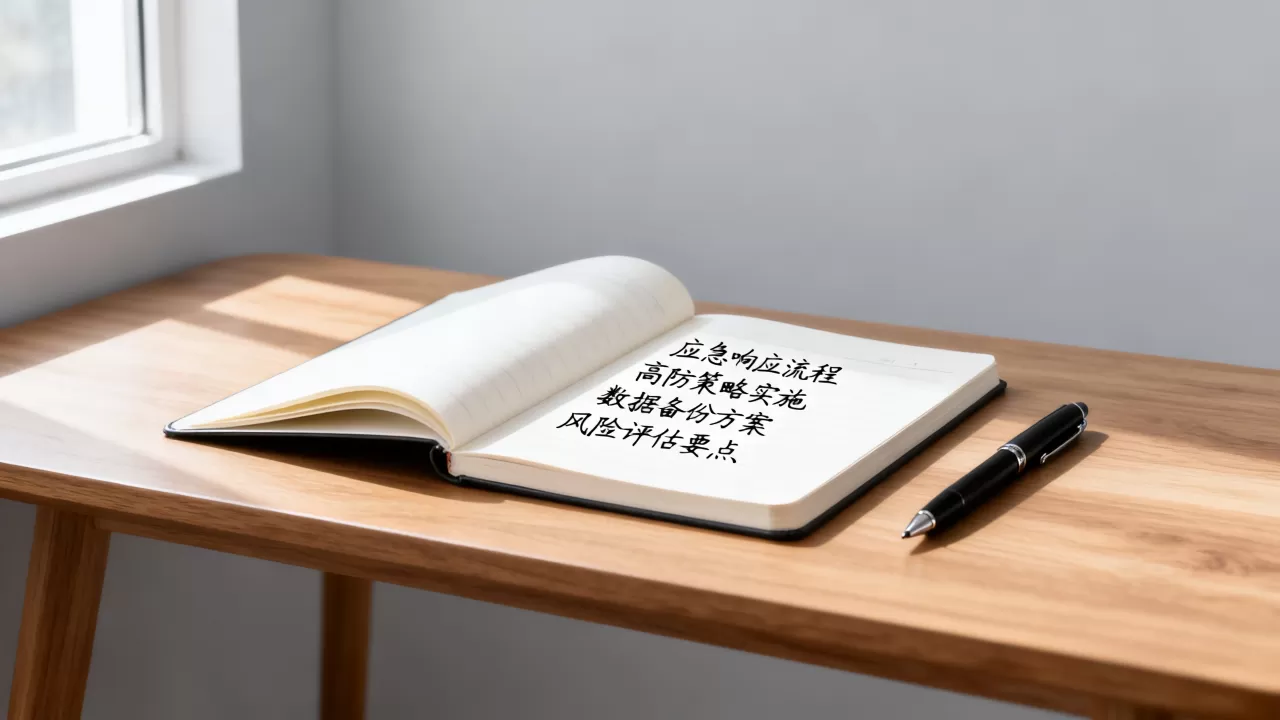 应急响应流程
高防策略实施
数据备份方案
风险评估要点